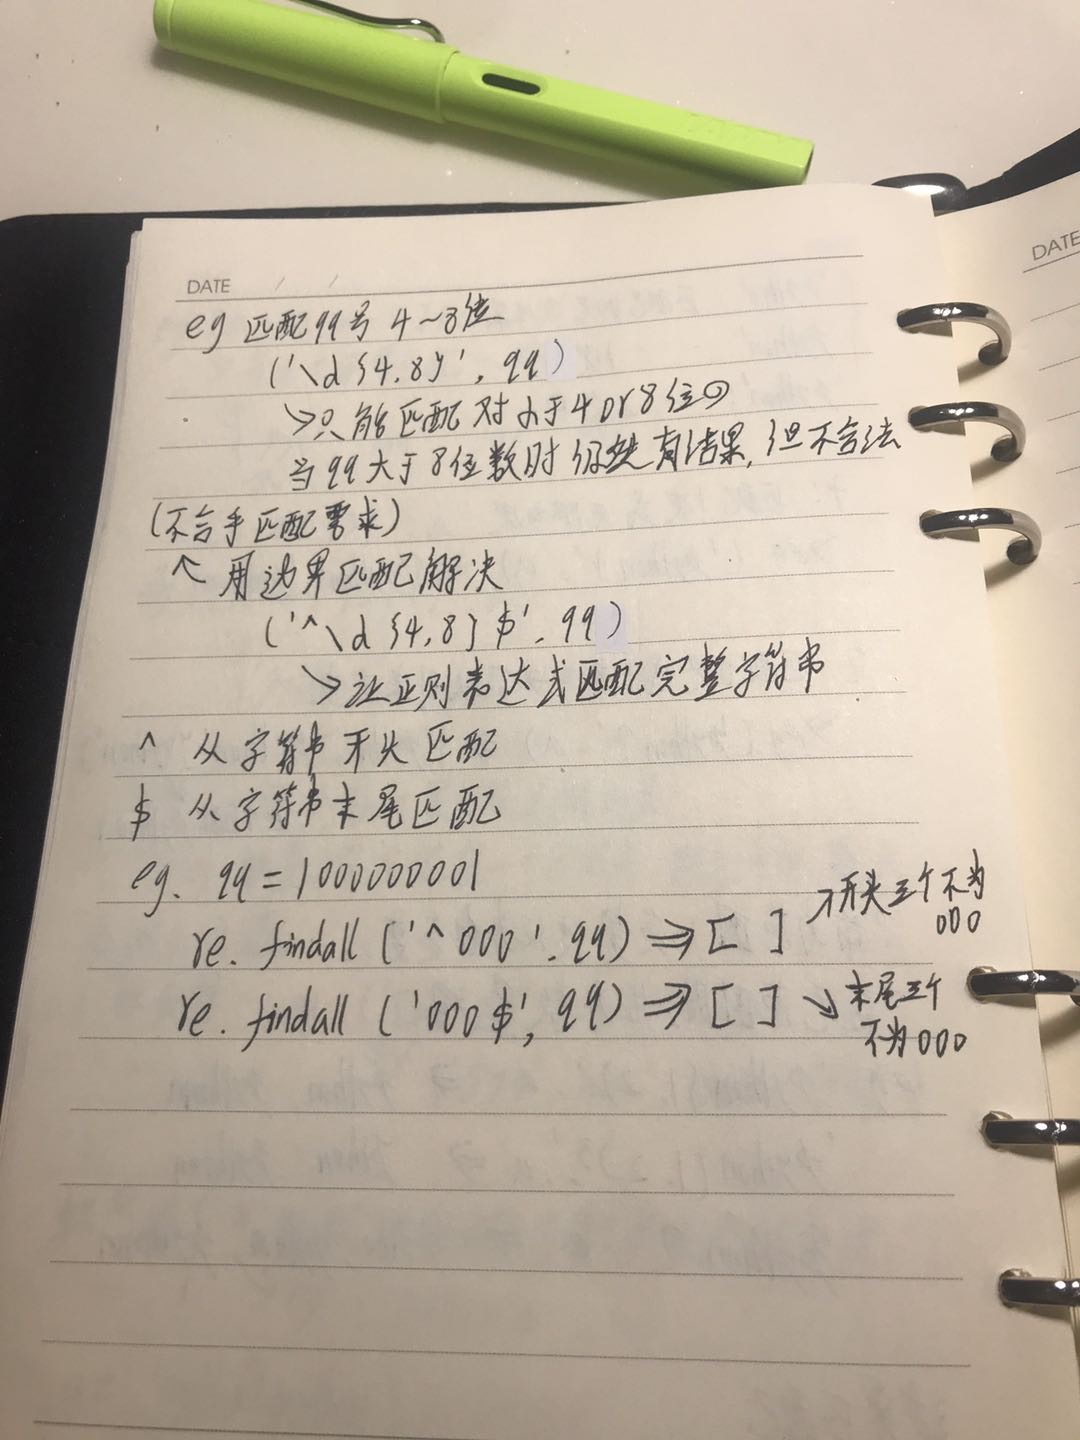 DATE / /
eg 匹配qq号 4~8位
('\d{4,8}', qq)
→只能匹配对小于4 or 8位的
当qq大于8位数时 仍然有结果, 但不合法
(不合乎匹配要求)
^ 用边界匹配解决
('^\d{4,8}$', qq)
→让正则表达式匹配完整字符串
^ 从字符串开头匹配
$ 从字符串末尾匹配
eg. qq = 1000000001
re.findall('^000', qq) ⇒ [ ] ↗开头三个不为
000
re.findall('000$', qq) ⇒ [ ] ↘末尾三个
不为000
DATE